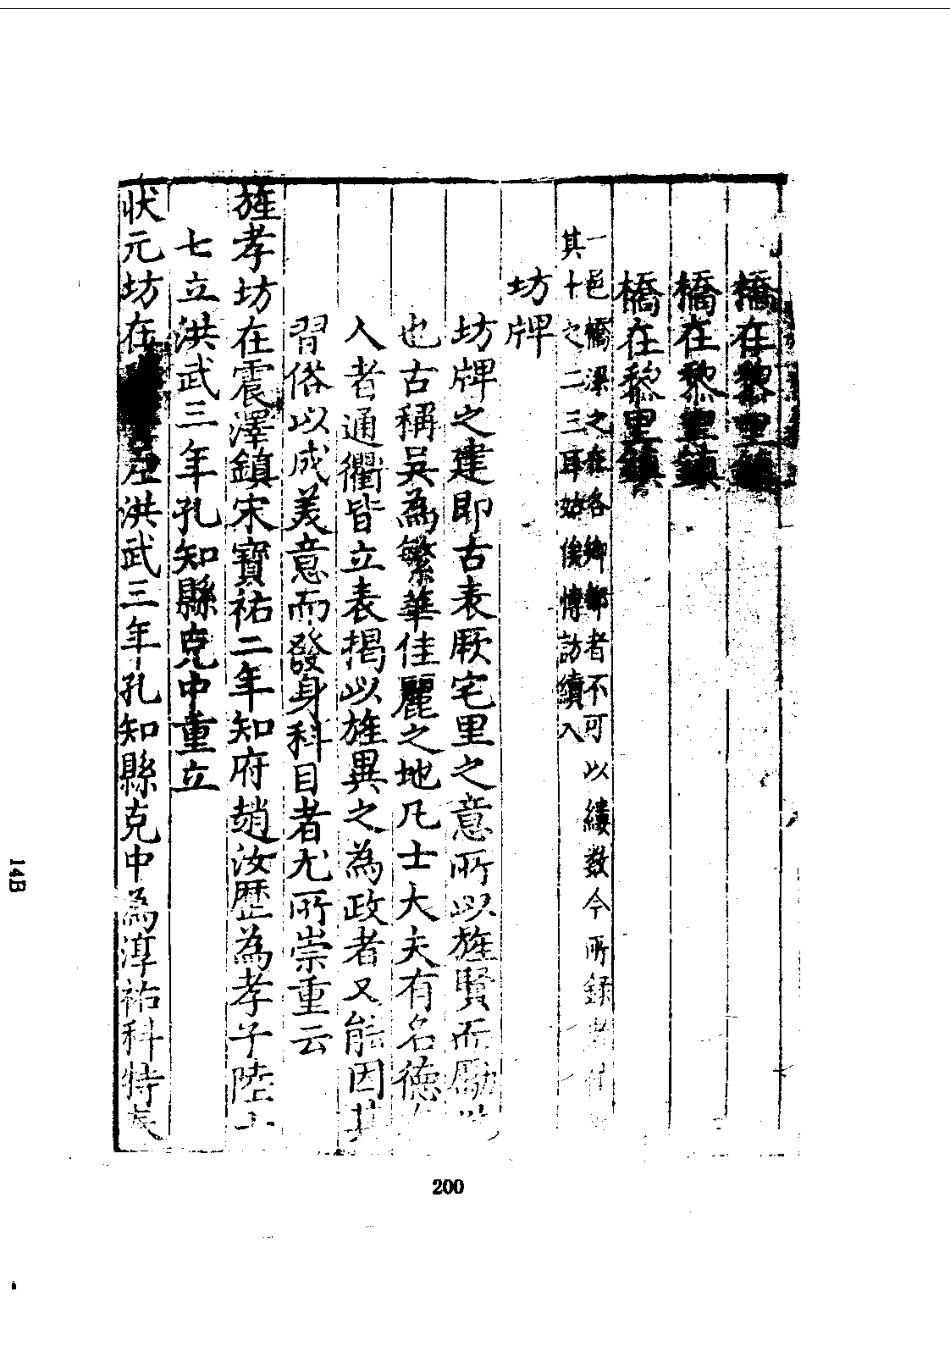 橋在黎里鎮
橋在黎里鎮
橋在黎里鎮
一邑橋梁之在各鄉都者不可以縷数今所錄者
其十之二三耳姑俟博訪續入
坊牌
坊牌之建即古表厥宅里之意所以旌賢而勵
也古稱吳為繁華佳麗之地凡士大夫有名德
人者通衢皆立表揭以旌異之為政者又能因其
習俗以成美意而發身科目者尤所崇重云
旌孝坊在震澤鎮宋寳祐二年知府趙汝歷為孝子陸士
七立洪武三年孔知縣克中重立
狀元坊在左洪武三年孔知縣克中為淳祐科特
200
14B